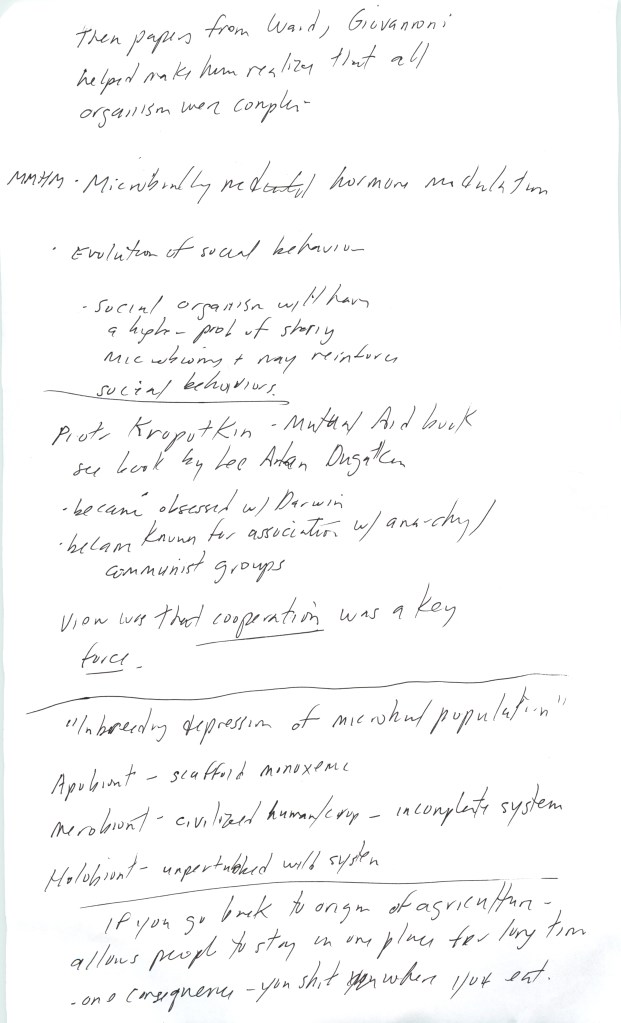 Then papers from Ward, Giovannoni
helped make him realize that all
organism were complex
MMHM - Microbially mediated hormone modulation
· Evolution of social behavior
- social organism will have
a higher prob of sharing
microbiomes + may reinforce
social behaviors.
Piotr Kropotkin - Mutual Aid book
see book by Lee Alan Dugatkin
- became obsessed w/ Darwin
· became known for association w/ anarchy/
communist groups
View was that cooperation was a key
force.
"Inbreeding depression of microbial population"
Apobiont - scaffold monoxenic
Merobiont - civilized human/crop - incomplete system
Holobiont - unperturbed wild system
If you go back to origin of agriculture -
allows people to stay in one place for long time
- one consequence - you shit where you eat.